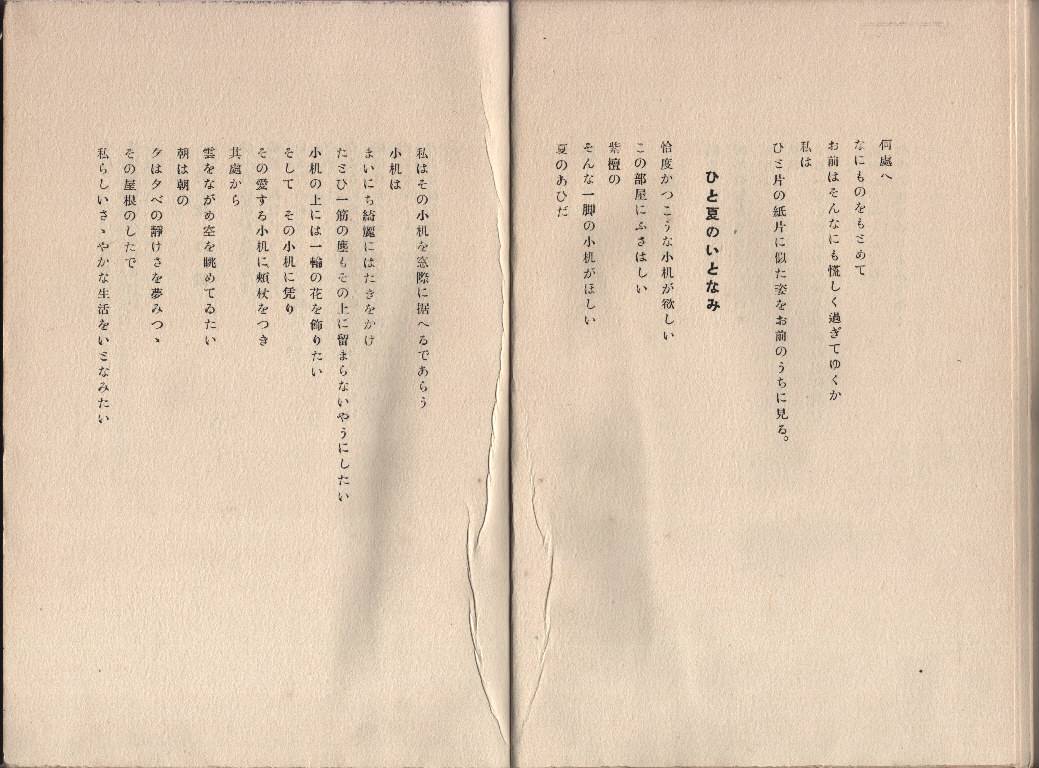 何處へ
なにものをもとめて
お前はそんなにも慌しく過ぎてゆくか
私は
ひと片の紙片に似た姿をお前のうちに見る。
ひと夏のいとなみ
恰度かつこうな小机が欲しい
この部屋にふさはしい
紫檀の
そんな一脚の小机がほしい
夏のあひだ
私はその小机を窓際に据へるであらう
小机は
まいにち綺麗にはたきをかけ
たとひ一筋の塵もその上に留まらないやうにしたい
小机の上には一輪の花を飾りたい
そして　その小机に凭り
その愛する小机に頰杖をつき
其處から
雲をながめ空を眺めてゐたい
朝は朝の
夕は夕べの靜けさを夢みつゝ
その屋根のしたで
私らしいさゝやかな生活をいとなみたい